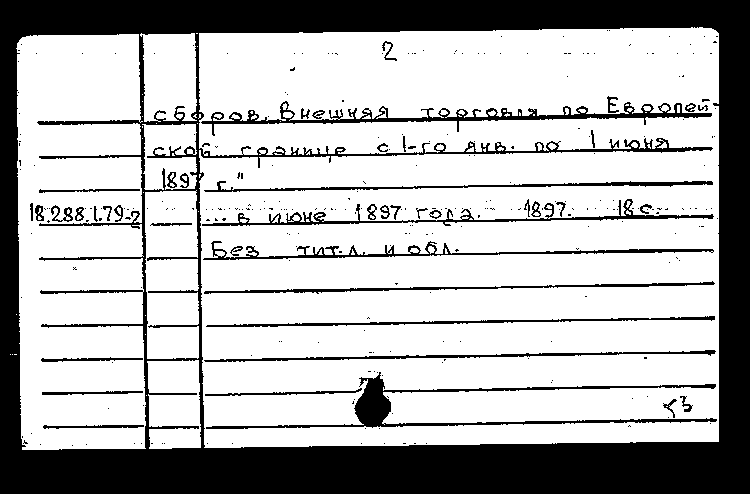 2
сборов. Внешняя торговля по Европей-
ской границе с 1-го янв. по 1 июня
1897 г."
18.288.1.79-2 ... в июне 1897 года. 1897. 18 с.
Без тит.л. и обл.